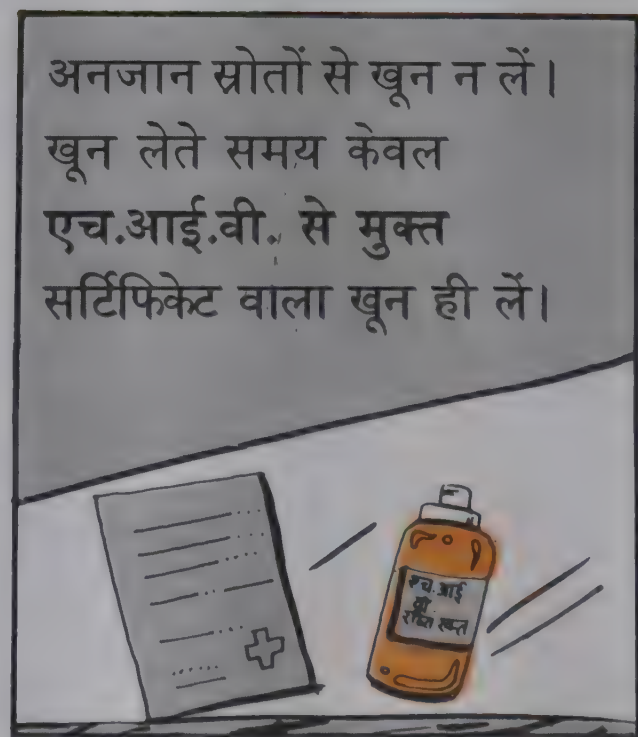 अनजान स्रोतों से खून न लें।
खून लेते समय केवल
एच.आई.वी. से मुक्त
सर्टिफिकेट वाला खून ही लें।
एच.आई
वी
रहित रक्त